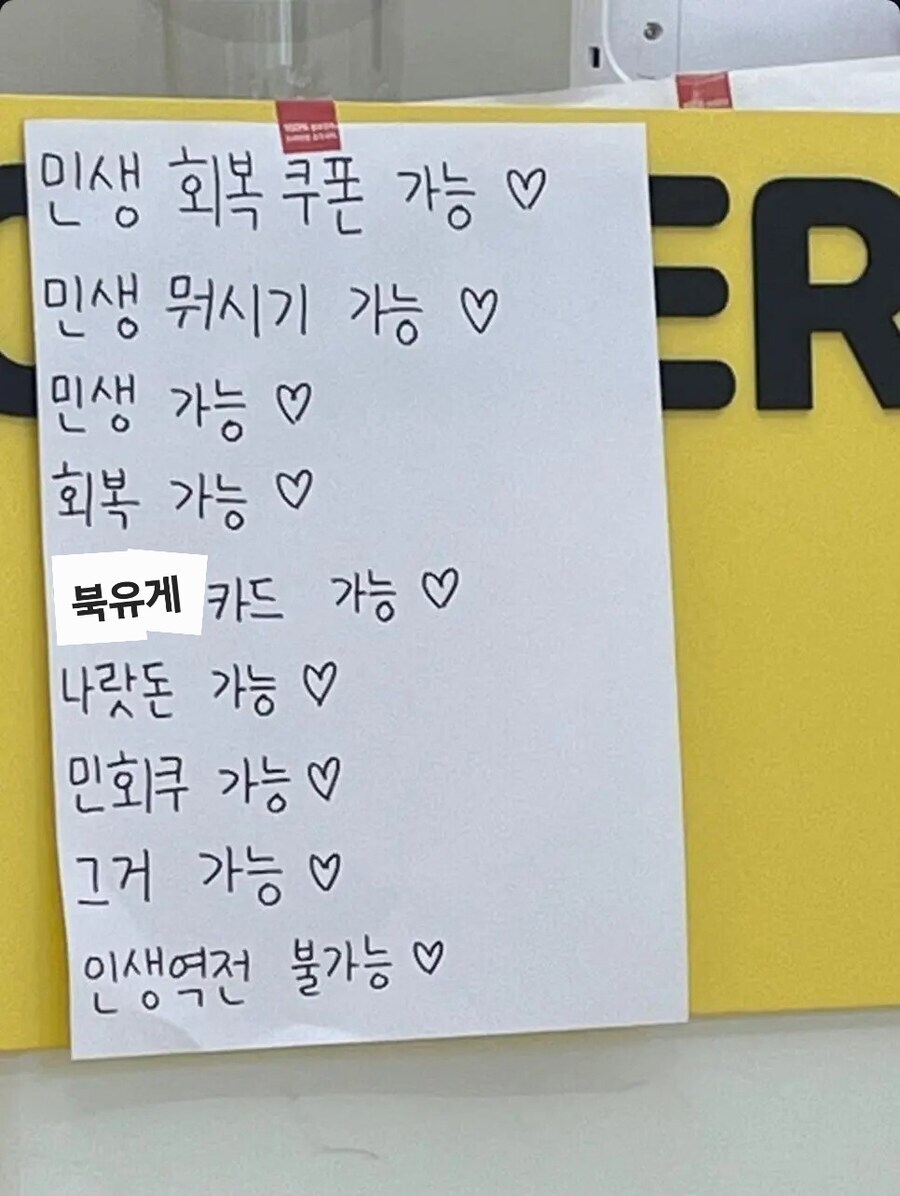 민생 회복 쿠폰 가능 ♡
민생 뭐시기 가능 ♡
민생 가능 ♡
회복 가능 ♡
북유게 카드 가능 ♡
나랏돈 가능 ♡
민회쿠 가능 ♡
그거 가능 ♡
인생역전 불가능 ♡
ER